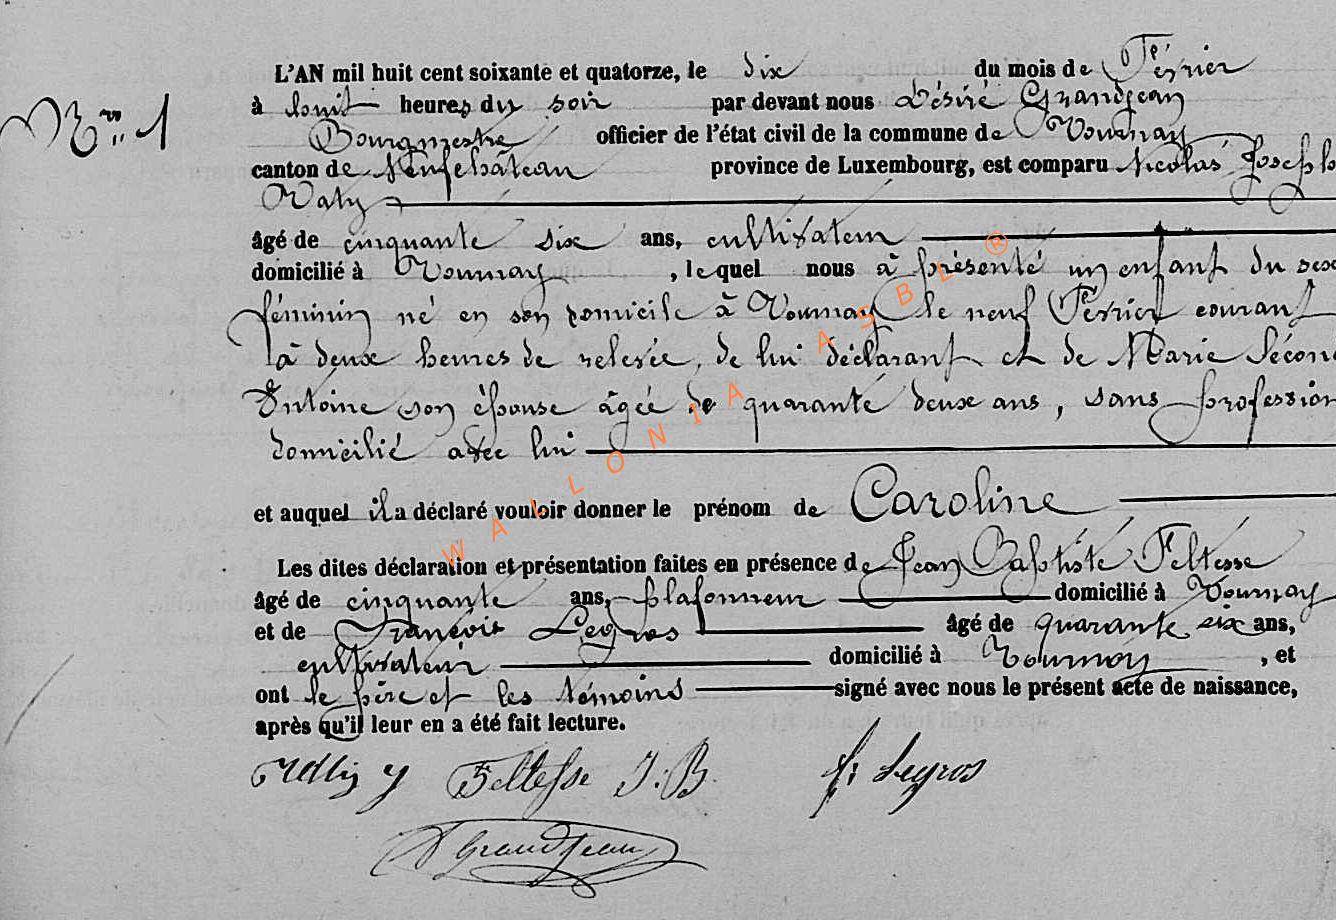 L'AN mil huit cent soixante et quatorze, le dix du mois de Février
Nro 1
à huit heures du soir par devant nous Désiré Grandjean
Bourgmestre officier de l'état civil de la commune de Tournay
canton de Neufchâteau province de Luxembourg, est comparu Nicolas Joseph
âgé de cinquante six ans, cultivateur
domicilié à Tournay, lequel nous à présenté un enfant du sexe
féminin né en son domicile à Tournay le neuf Février courant
à deux heures de relevée, de lui déclarant et de Marie Second
Antoine son épouse âgée de quarante deux ans, sans profession
domicilié avec lui
et auquel il a déclaré vouloir donner le prénom de Caroline
Les dites déclaration et présentation faites en présence de Jean Baptiste Feltesse
âgé de cinquante ans, plafonneur domicilié à Tournay
et de François Legros âgé de quarante six ans,
cultivateur domicilié à Tournay, et
ont le père et les témoins signé avec nous le présent acte de naissance,
après qu'il leur en a été fait lecture.
Feltesse J. B. f. Legros
D Grandjean
WALLONIA ASBL ®